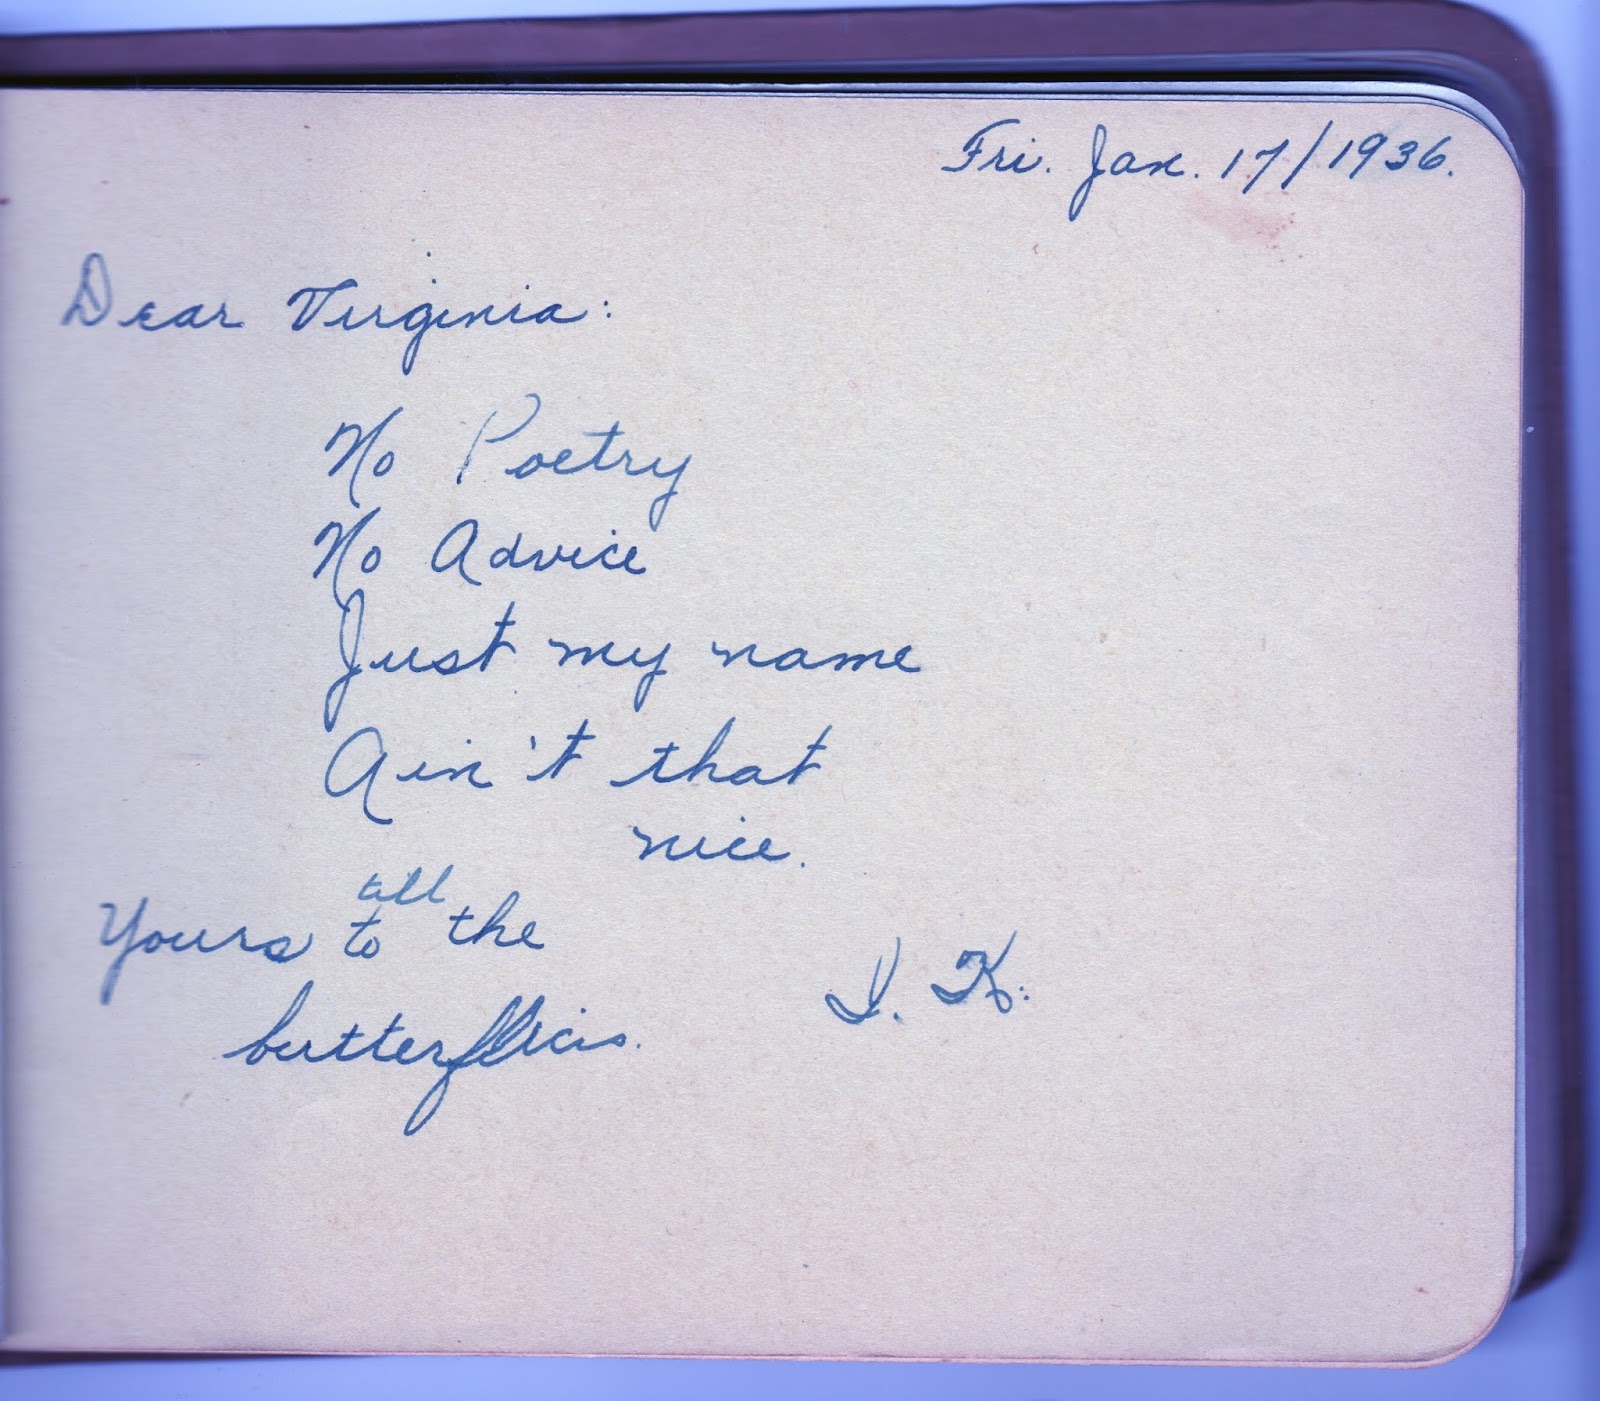 Fri. Jan. 17/1936.
Dear Virginia:
No Poetry
No Advice
Just my name
Ain't that
nice.
all
Yours to the
butterflies.
I. K.